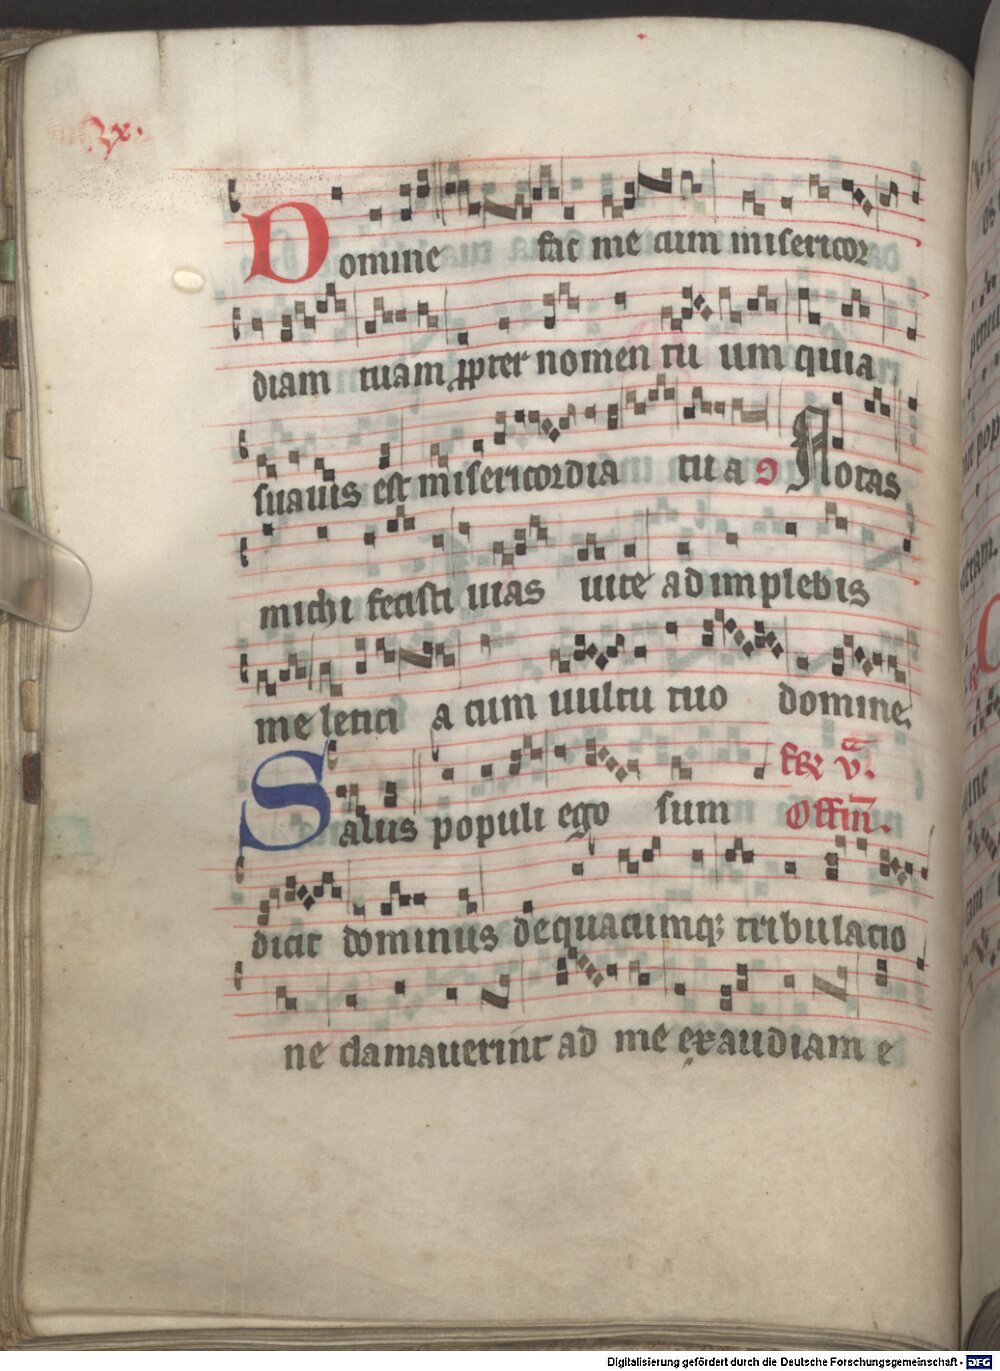 Domine fac me cum misericor
diam tuam ꝓpter nomen tu um quia
suauis est misericordia tu a Notas
michi fecisti uias uite adimplebis
me leticia cum uultu tuo domine.
Salus populi ego sum
Offm̄.
dicit dominus dequacumq; tribulatio
ne clamauerint ad me exaudiam e
Digitalisierung gefördert durch die Deutsche Forschungsgemeinschaft - DFG